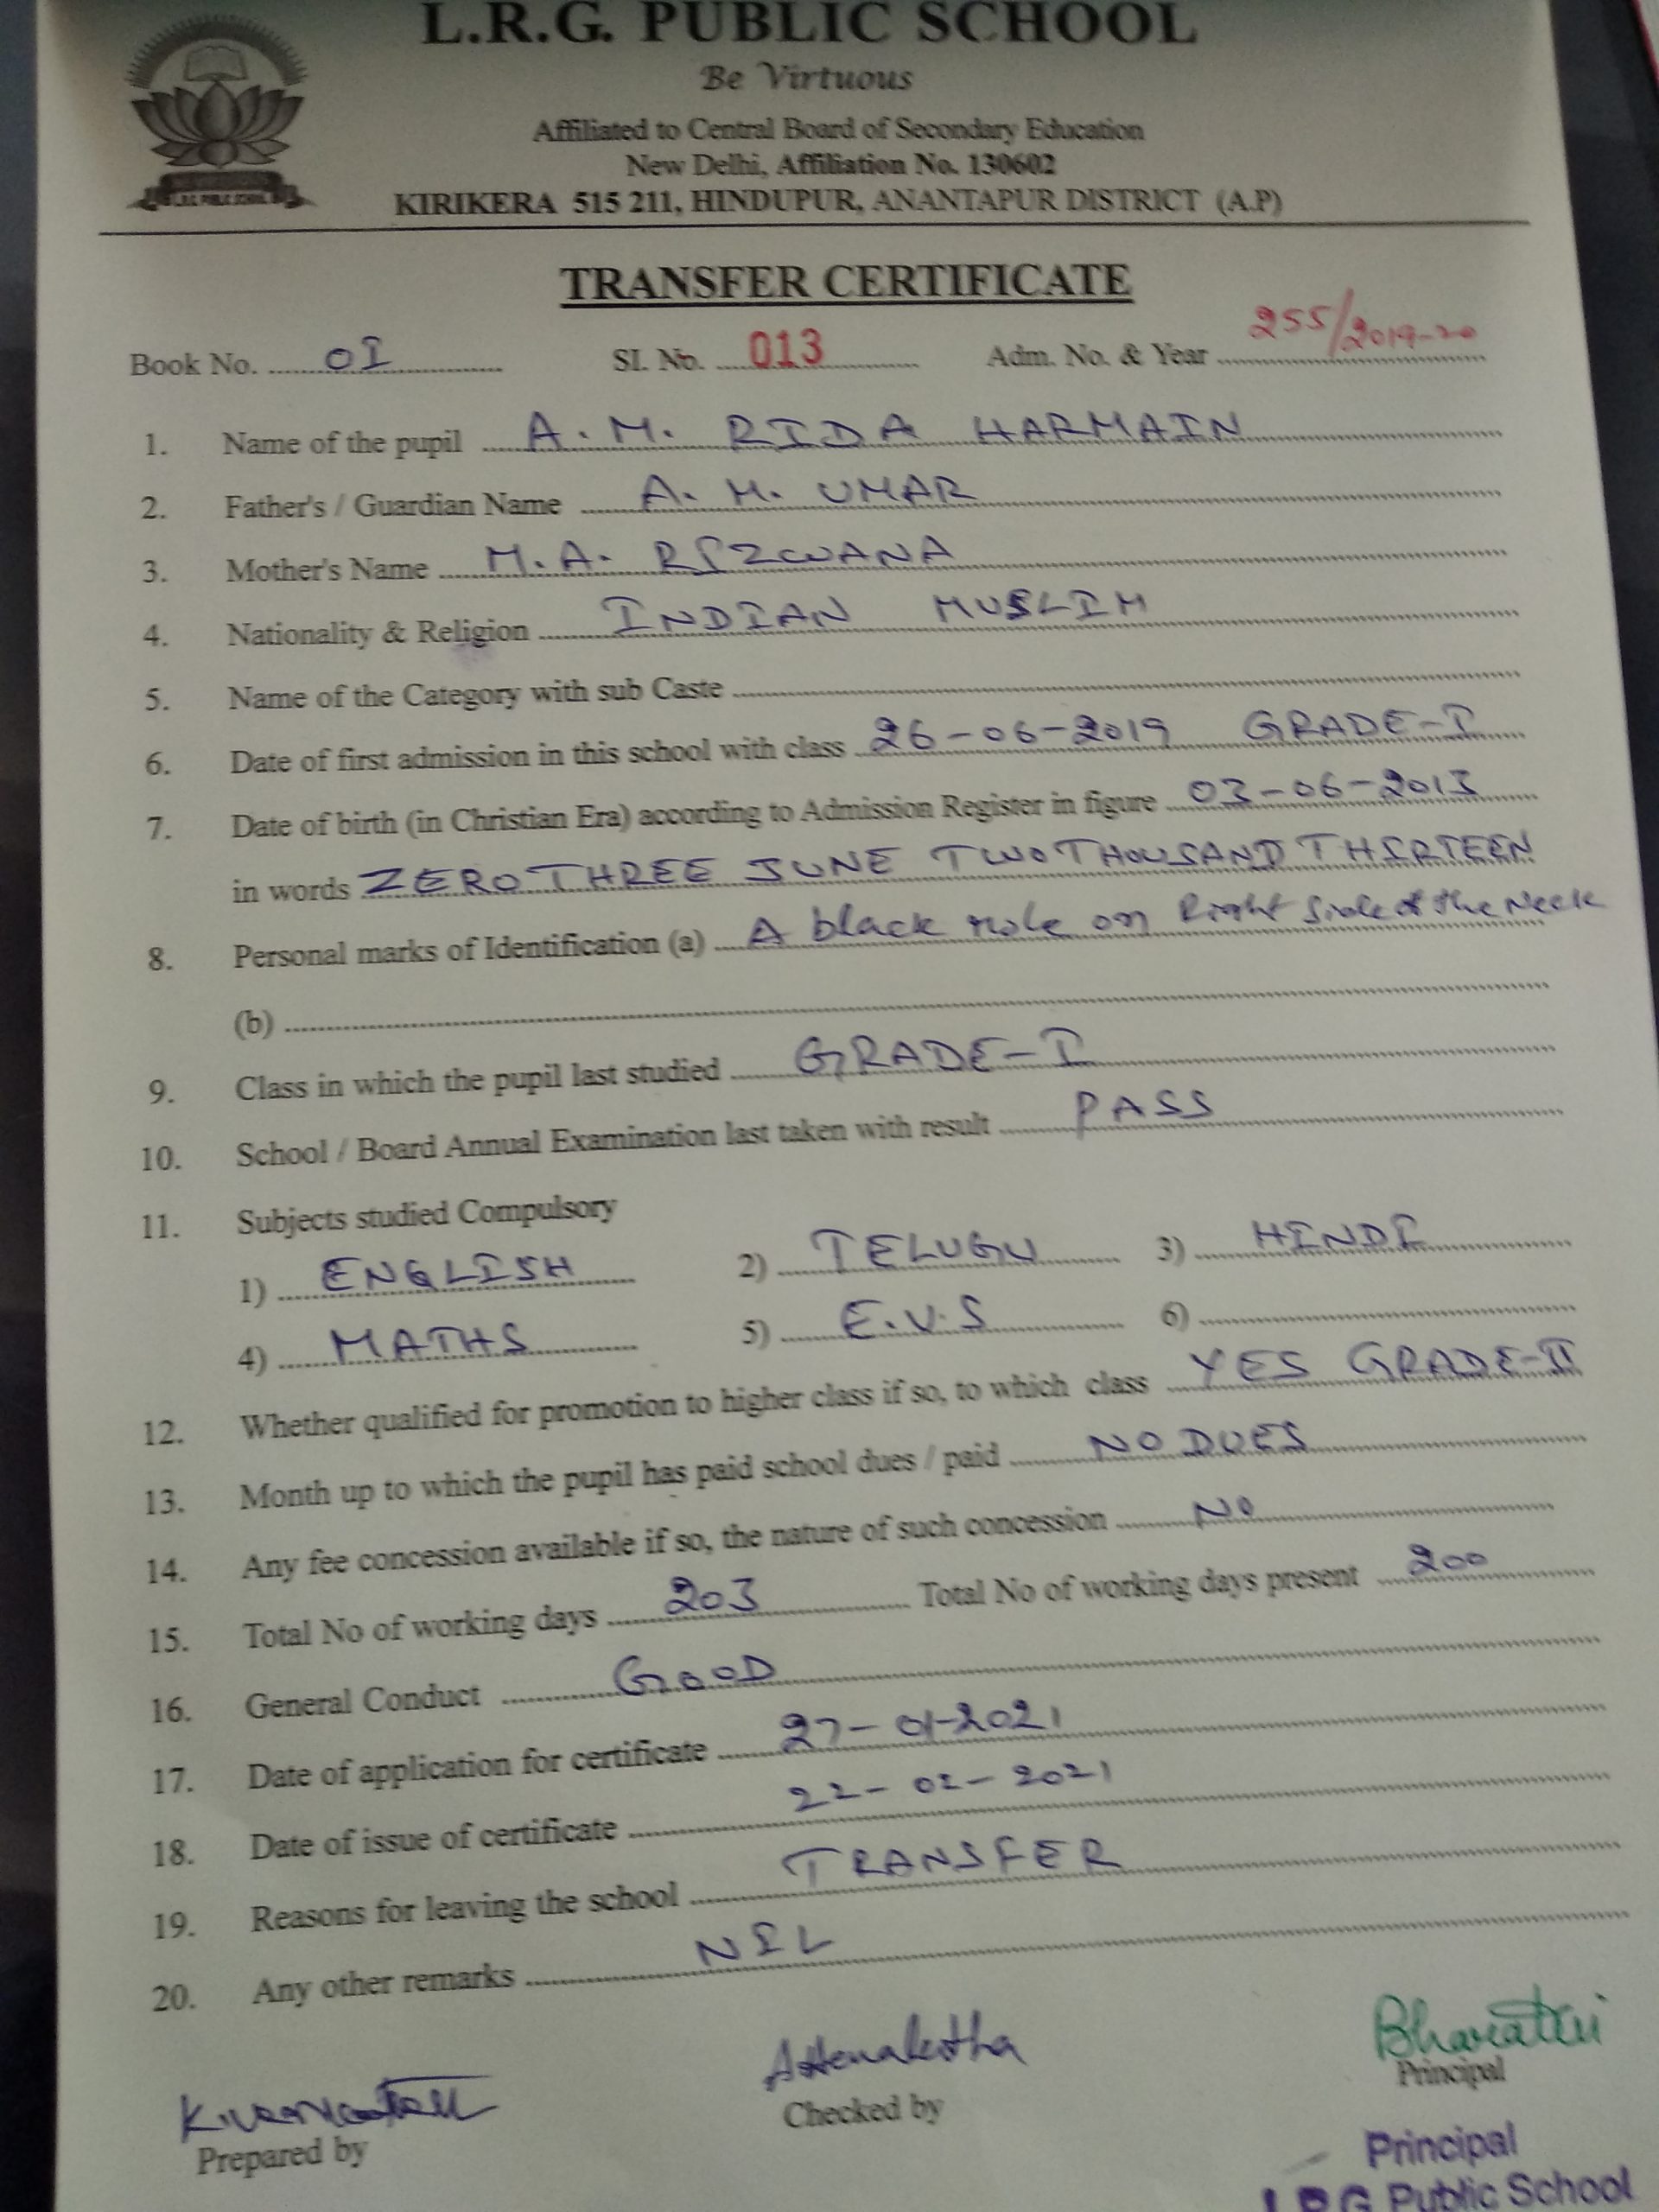 L.R.G. PUBLIC SCHOOL
Be Virtuous
Affiliated to Central Board of Secondary Education
New Delhi, Affiliation No. 130602
KIRIKERA 515 211, HINDUPUR, ANANTAPUR DISTRICT (A.P)
L.R.G. PUBLIC SCHOOL
TRANSFER CERTIFICATE
Book No. 01 SI. No. 013 Adm. No. & Year 255/2019-20
1. Name of the pupil A. M. RIDA HARMAIN
2. Father's / Guardian Name A. M. UMAR
3. Mother's Name M. A. RIZWANA
4. Nationality & Religion INDIAN MUSLIM
5. Name of the Category with sub Caste
6. Date of first admission in this school with class 26-06-2019 GRADE-I
7. Date of birth (in Christian Era) according to Admission Register in figure 03-06-2013
in words ZERO THREE JUNE TWO THOUSAND THIRTEEN
8. Personal marks of Identification (a) A black mole on Right Side of the Neck
(b)
9. Class in which the pupil last studied GRADE-I
10. School / Board Annual Examination last taken with result PASS
11. Subjects studied Compulsory
1) ENGLISH 2) TELUGU 3) HINDI
4) MATHS 5) E.V.S 6)
12. Whether qualified for promotion to higher class if so, to which class YES GRADE-II
13. Month up to which the pupil has paid school dues / paid NO DUES
14. Any fee concession available if so, the nature of such concession NO
15. Total No of working days 203 Total No of working days present 200
16. General Conduct GOOD
17. Date of application for certificate 27-01-2021
18. Date of issue of certificate 22-02-2021
19. Reasons for leaving the school TRANSFER
20. Any other remarks NIL
Prepared by Checked by Principal
Principal
L.R.G Public School